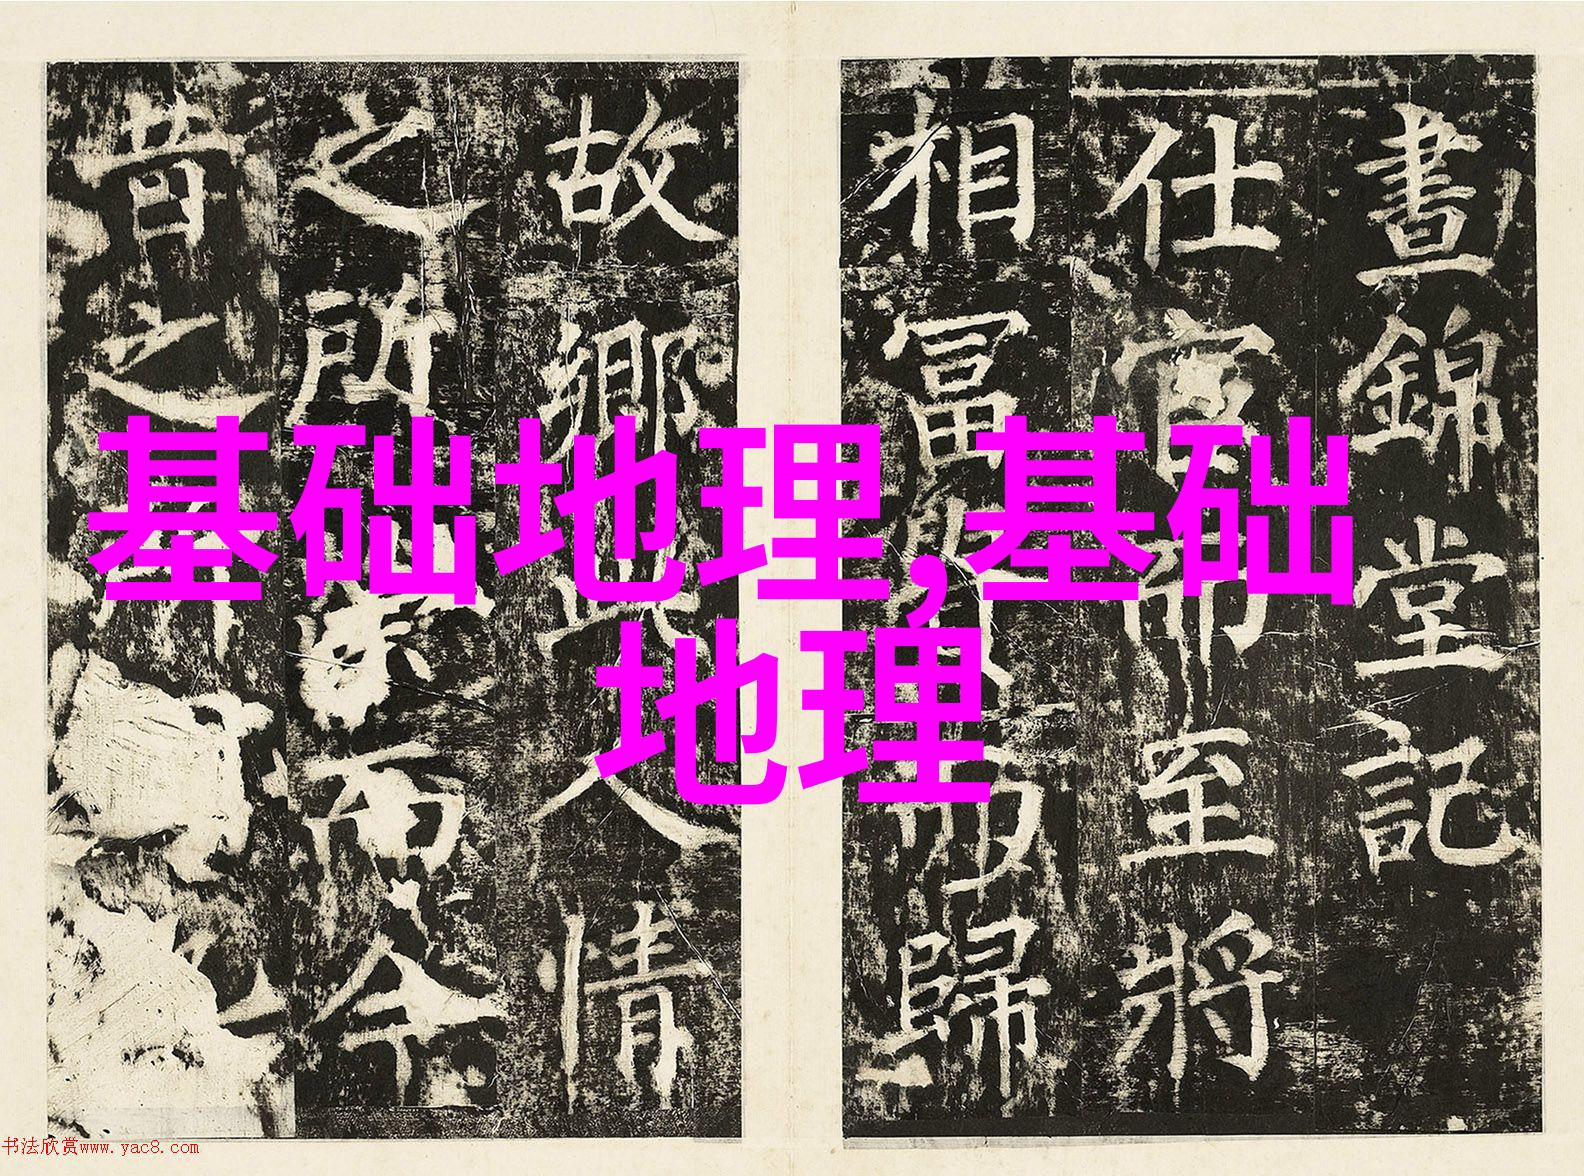 基础地理,基础
地理
晝錦堂記
仕宦而至將
相冨貴而歸
故鄉此人情
之所榮而今
昔之所
书法欣赏www.yac8.com